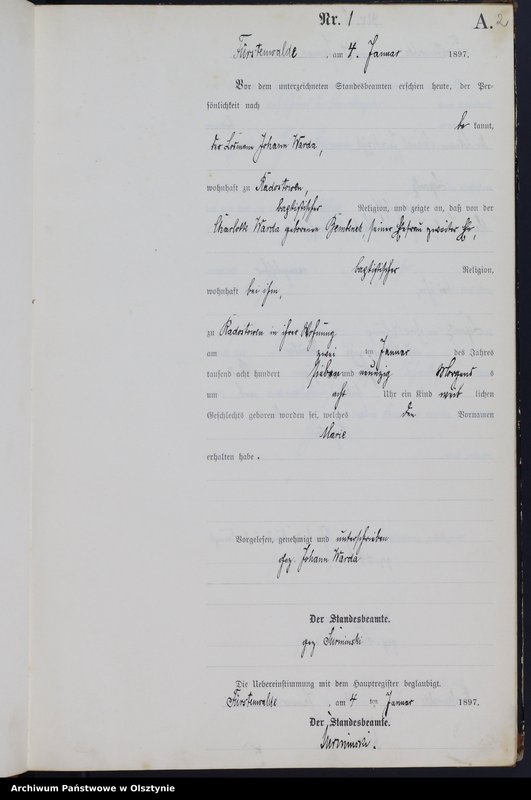 Nr. 1
A. 2
Fürstenwalde, am 4. Januar 1897.
Vor dem unterzeichneten Standesbeamten erschien heute, der Per-
sönlichkeit nach
be kannt,
der Losmann Johann Warda,
wohnhaft zu Radostowen,
baptistischer Religion, und zeigte an, daß von der
Charlotte Warda geborenen, seiner Ehefrau zweiter Ehe,
baptistischer Religion,
wohnhaft bei ihm,
zu Radostowen in ihrer Wohnung
am zwei ten Januar des Jahres
tausend acht hundert sieben und neunzig Morgens s
um acht Uhr ein Kind weib lichen
Geschlechts geboren worden sei, welches den Vornamen
Marie
erhalten habe.
Vorgelesen, genehmigt und unterschrieben
gez. Johann Warda
Der Standesbeamte.
gez. Surminski
Die Uebereinstimmung mit dem Hauptregister beglaubigt.
Fürstenwalde, am 4 ten Januar 1897.
Der Standesbeamte.
Surminski.
Archiwum Państwowe w Olsztynie